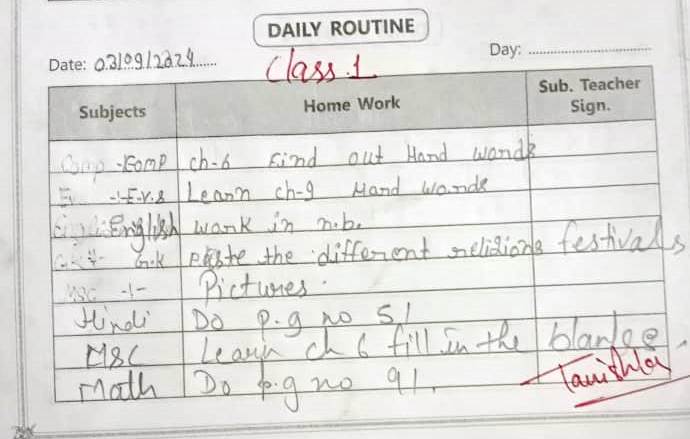 DAILY ROUTINE
Date: 03/09/2024...... Day: ................................
Class 1
Subjects Home Work Sub. Teacher Sign.
Comp - Comp ch-6 Find out Hand words
- E.v.s Learn ch-9 Hand words
English work in n.b.
G.K paste the different religions festivals
MSC -1- Pictures.
Hindi Do p.g no 51
MSC Learn ch 6 fill in the blanks.
Math Do p.g no 91.